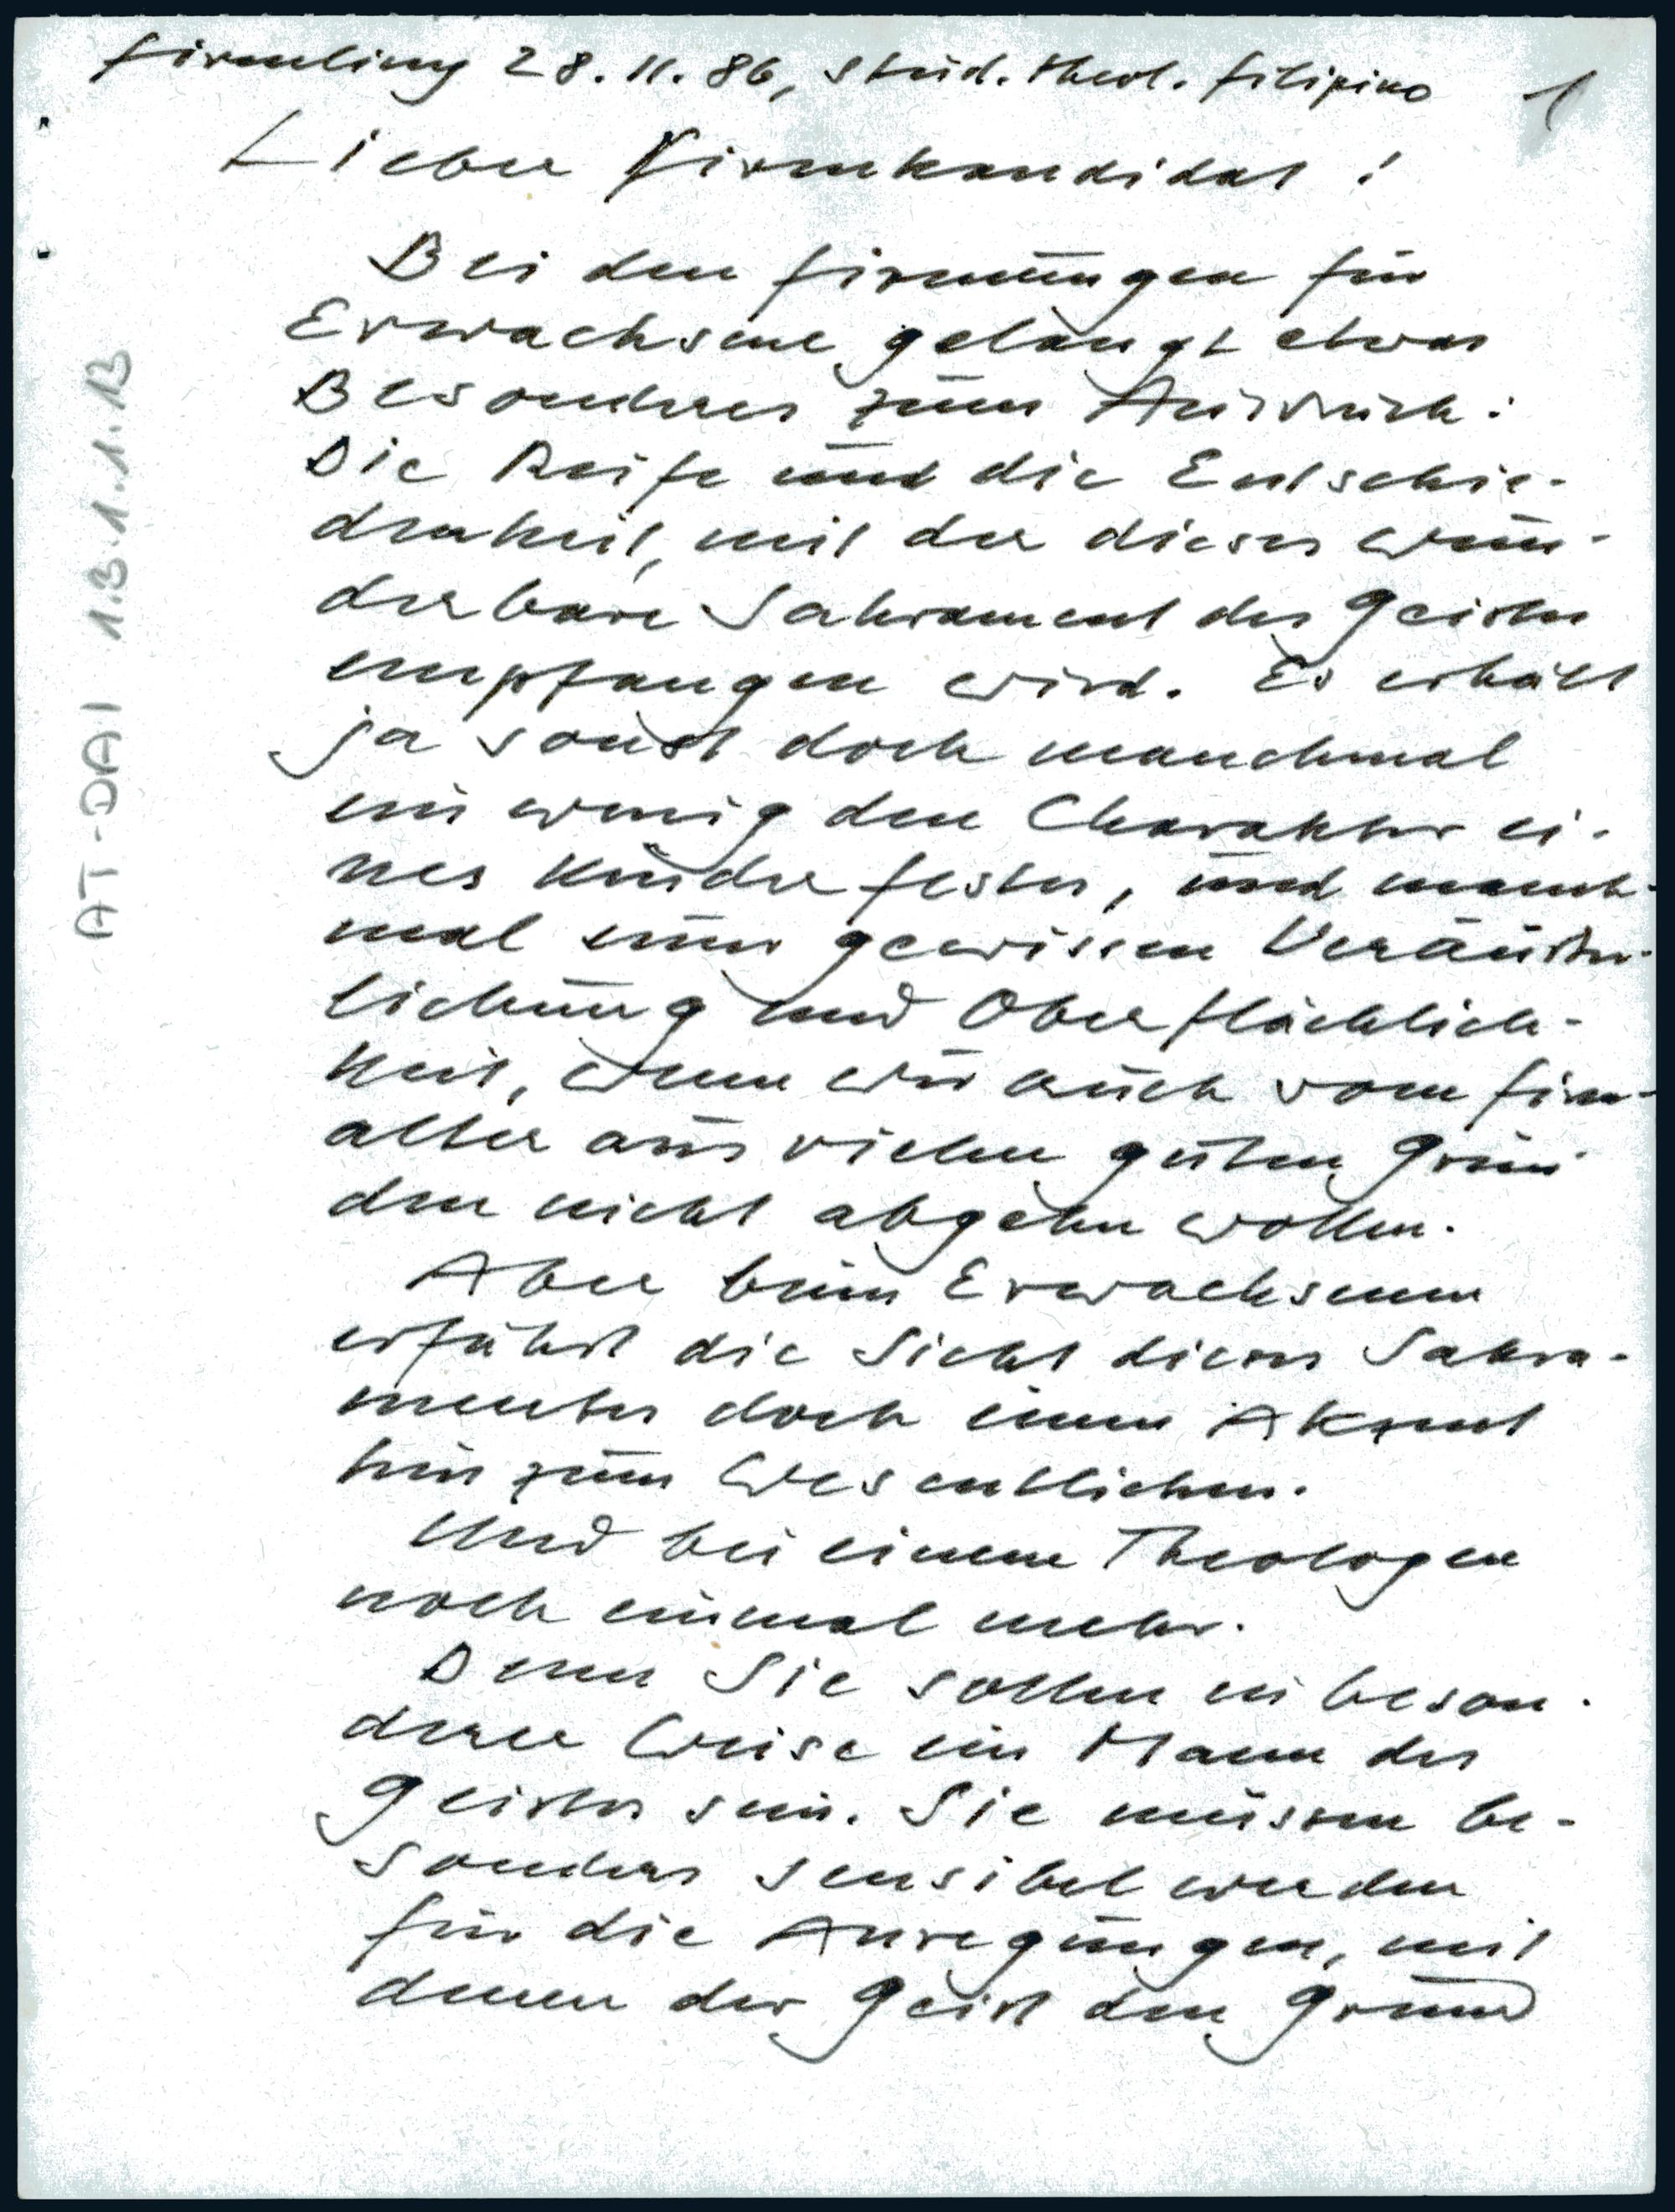 Firmling 28.11.86, Stud. theol. Filipino 1
Lieber Firmkandidat!
Bei den Firmungen für
Erwachsene gelangt etwas
Besonderes zum Ausdruck:
Die Reife und die Entschie-
denheit, mit der dieses wun-
derbare Sakrament des Geistes
empfangen wird. Es erhält
ja sonst doch manchmal
ein wenig den Charakter ei-
nes Kinderfestes, und manch-
mal einer gewissen Veräußer-
lichung und Oberflächlich-
keit, wenn wir auch vom Firm-
alter aus vielen guten Grün-
den nicht abgehen wollen.
Aber beim Erwachsenen
erfährt die Sicht dieses Sakra-
mentes doch einen Akzent
hin zum Wesentlichen.
Und bei einem Theologen
noch einmal mehr.
Denn Sie sollen in beson-
derer Weise ein Mann des
Geistes sein. Sie müssen be-
sonders sensibel werden
für die Anregungen, mit
denen der Geist den Grund
AT-DAI 1.3.1.1.13